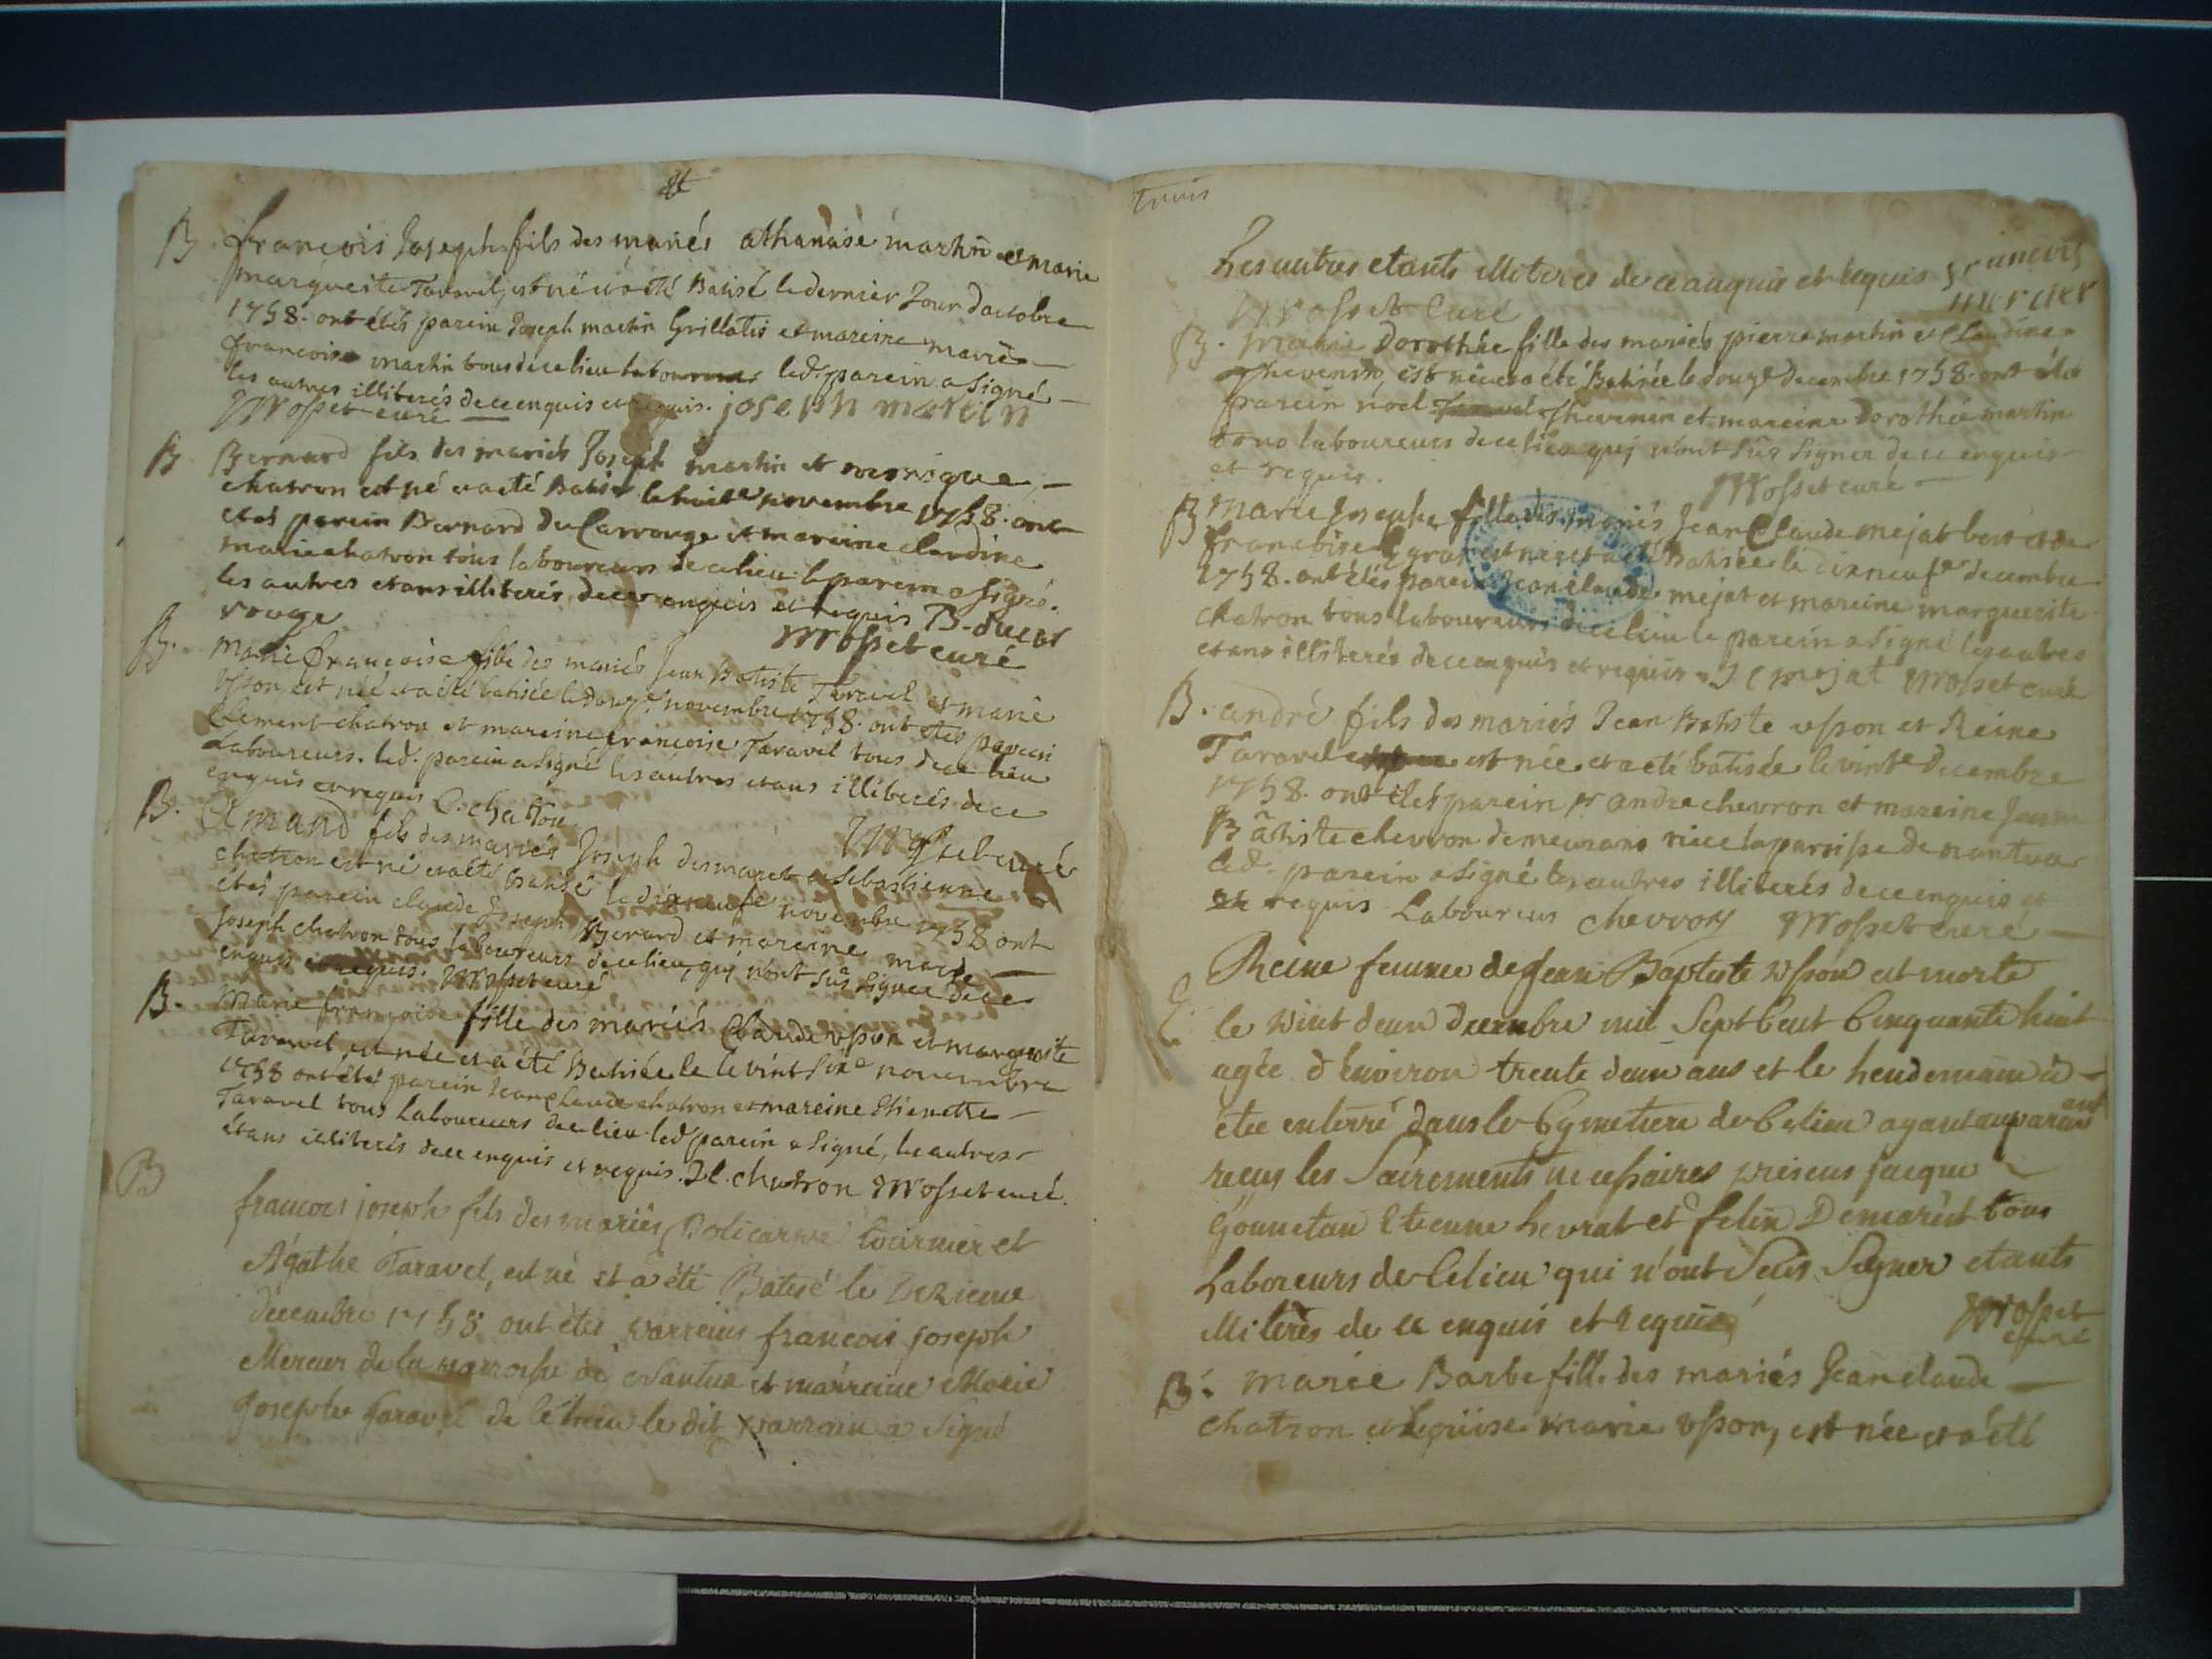 B. francois Joseph fils des mariés athanase martin et marie
marguerite Taravel, est né et a été Batisé le dernier Jour d'octobre
1758. ont étés parein Joseph martin Grillatis et mareine marie
francoise martin tous de ce lieu led. parein a signé
les autres illiterés de ce enquis et requis. joseph martin
Mosset curé
B. Bernard fils des mariés Joseph martin et monique
chatron est né et a été Batisé le huite novembre 1758. ont
étés parein Bernard du Carrouge et mareine claudine
marie chatron tous laboureurs de ce lieu le parein a signé.
les autres etans illiterés de ce enquis et requis B. ducar
rouge Mosset curé
B. Marie francoise fille des mariés Jean Batiste Taravel et marie
Usson, est née et a été batisée le douze novembre 1758. ont étés parein
Clement chatron et mareine francoise Taravel tous de ce lieu
Laboureurs. led. parein a signé les autres etans illiterés de ce
enquis et requis C. chatron Mosset curé
B. Amand fils des mariés Joseph desmaret et sebastienne
chatron est né et a été batisé le dixneufe novembre 1758 ont
étés parein claude Joseph Berard et mareine marie
Joseph chatron tous laboureurs de ce lieu, quj n'ont sûs signer de ce
enquis et requis. Mosset curé
B. Marie francoise fille des mariés Claude usson et marguerite
Taravel, est née et a été Batisée le le vint sixe novembre
1758 ont étés parein Jean Claude chatron et mareine Etienette
Taravel tous Laboureurs de ce lieu led parein a signé, les autres
étans illiterés de ce enquis et requis. J c. chatron Mosset curé.
B francois joseph fils des mariés Policarpe tournier et
Agathe Taravel, est né et a été Batisé le
decembre 1758 ont étés parreins francois joseph
Mercier de la parroisse de Nantua et marreine Marie
Josephe Taravel de ce lieu le dit parrain a signé
trois
Les autres etants illiteres de ce enquis et requis francois
Mosset Curé mercier
B. marie Dorothée fille des mariés pierre martin et Claudine
thevenin, est née et a été Batisée le douze decembre 1758. ont étés
parein noel thevenin et mareine Dorothée martin
tous laboureurs de ce lieu quj n'ont sûs signer de ce enquis
et requis. Mosset curé
B Marie Josephe fille des mariés Jean Claude mejat et de
francoise est née et a été Batisée le dixneufe decembre
1758. ont étés parein Jean claude mejat et mareine marguerite
chatron tous laboureurs de ce lieu le parein a signé les autres
etans illiterés de ce enquis et requis J C mejat Mosset curé
B. andré fils des mariés Jean Batiste usson et Reine
Taravel est née et a été batisée le vinte decembre
1758. ont étés parein andre chevron et mareine Jeanne
Bâtiste chevron de la parroisse de nantua
led. parein a signé les autres illiterés de ce enquis et
et requis Laboureurs chevron Mosset curé
Reine femme de Jean Baptiste Usson est morte
le vint deux decembre mil Sept Cent Cinquante huit
agée d'Environ trente deux ans et le lendemain a
étée enterré dans le Cymetiere de Ce lieu ayant auparavant
recus les Sacrements necessaires presens jacque
Gonnetan Etienne et felix Demarêt tous
Laboreurs de Ce lieu qui n'ont Seus Signer etants
illiterés de ce enquis et requis Mosset
curé
B. marie Barbe fille des mariés Jean claude
chatron et Loüise marie usson, est née et a été